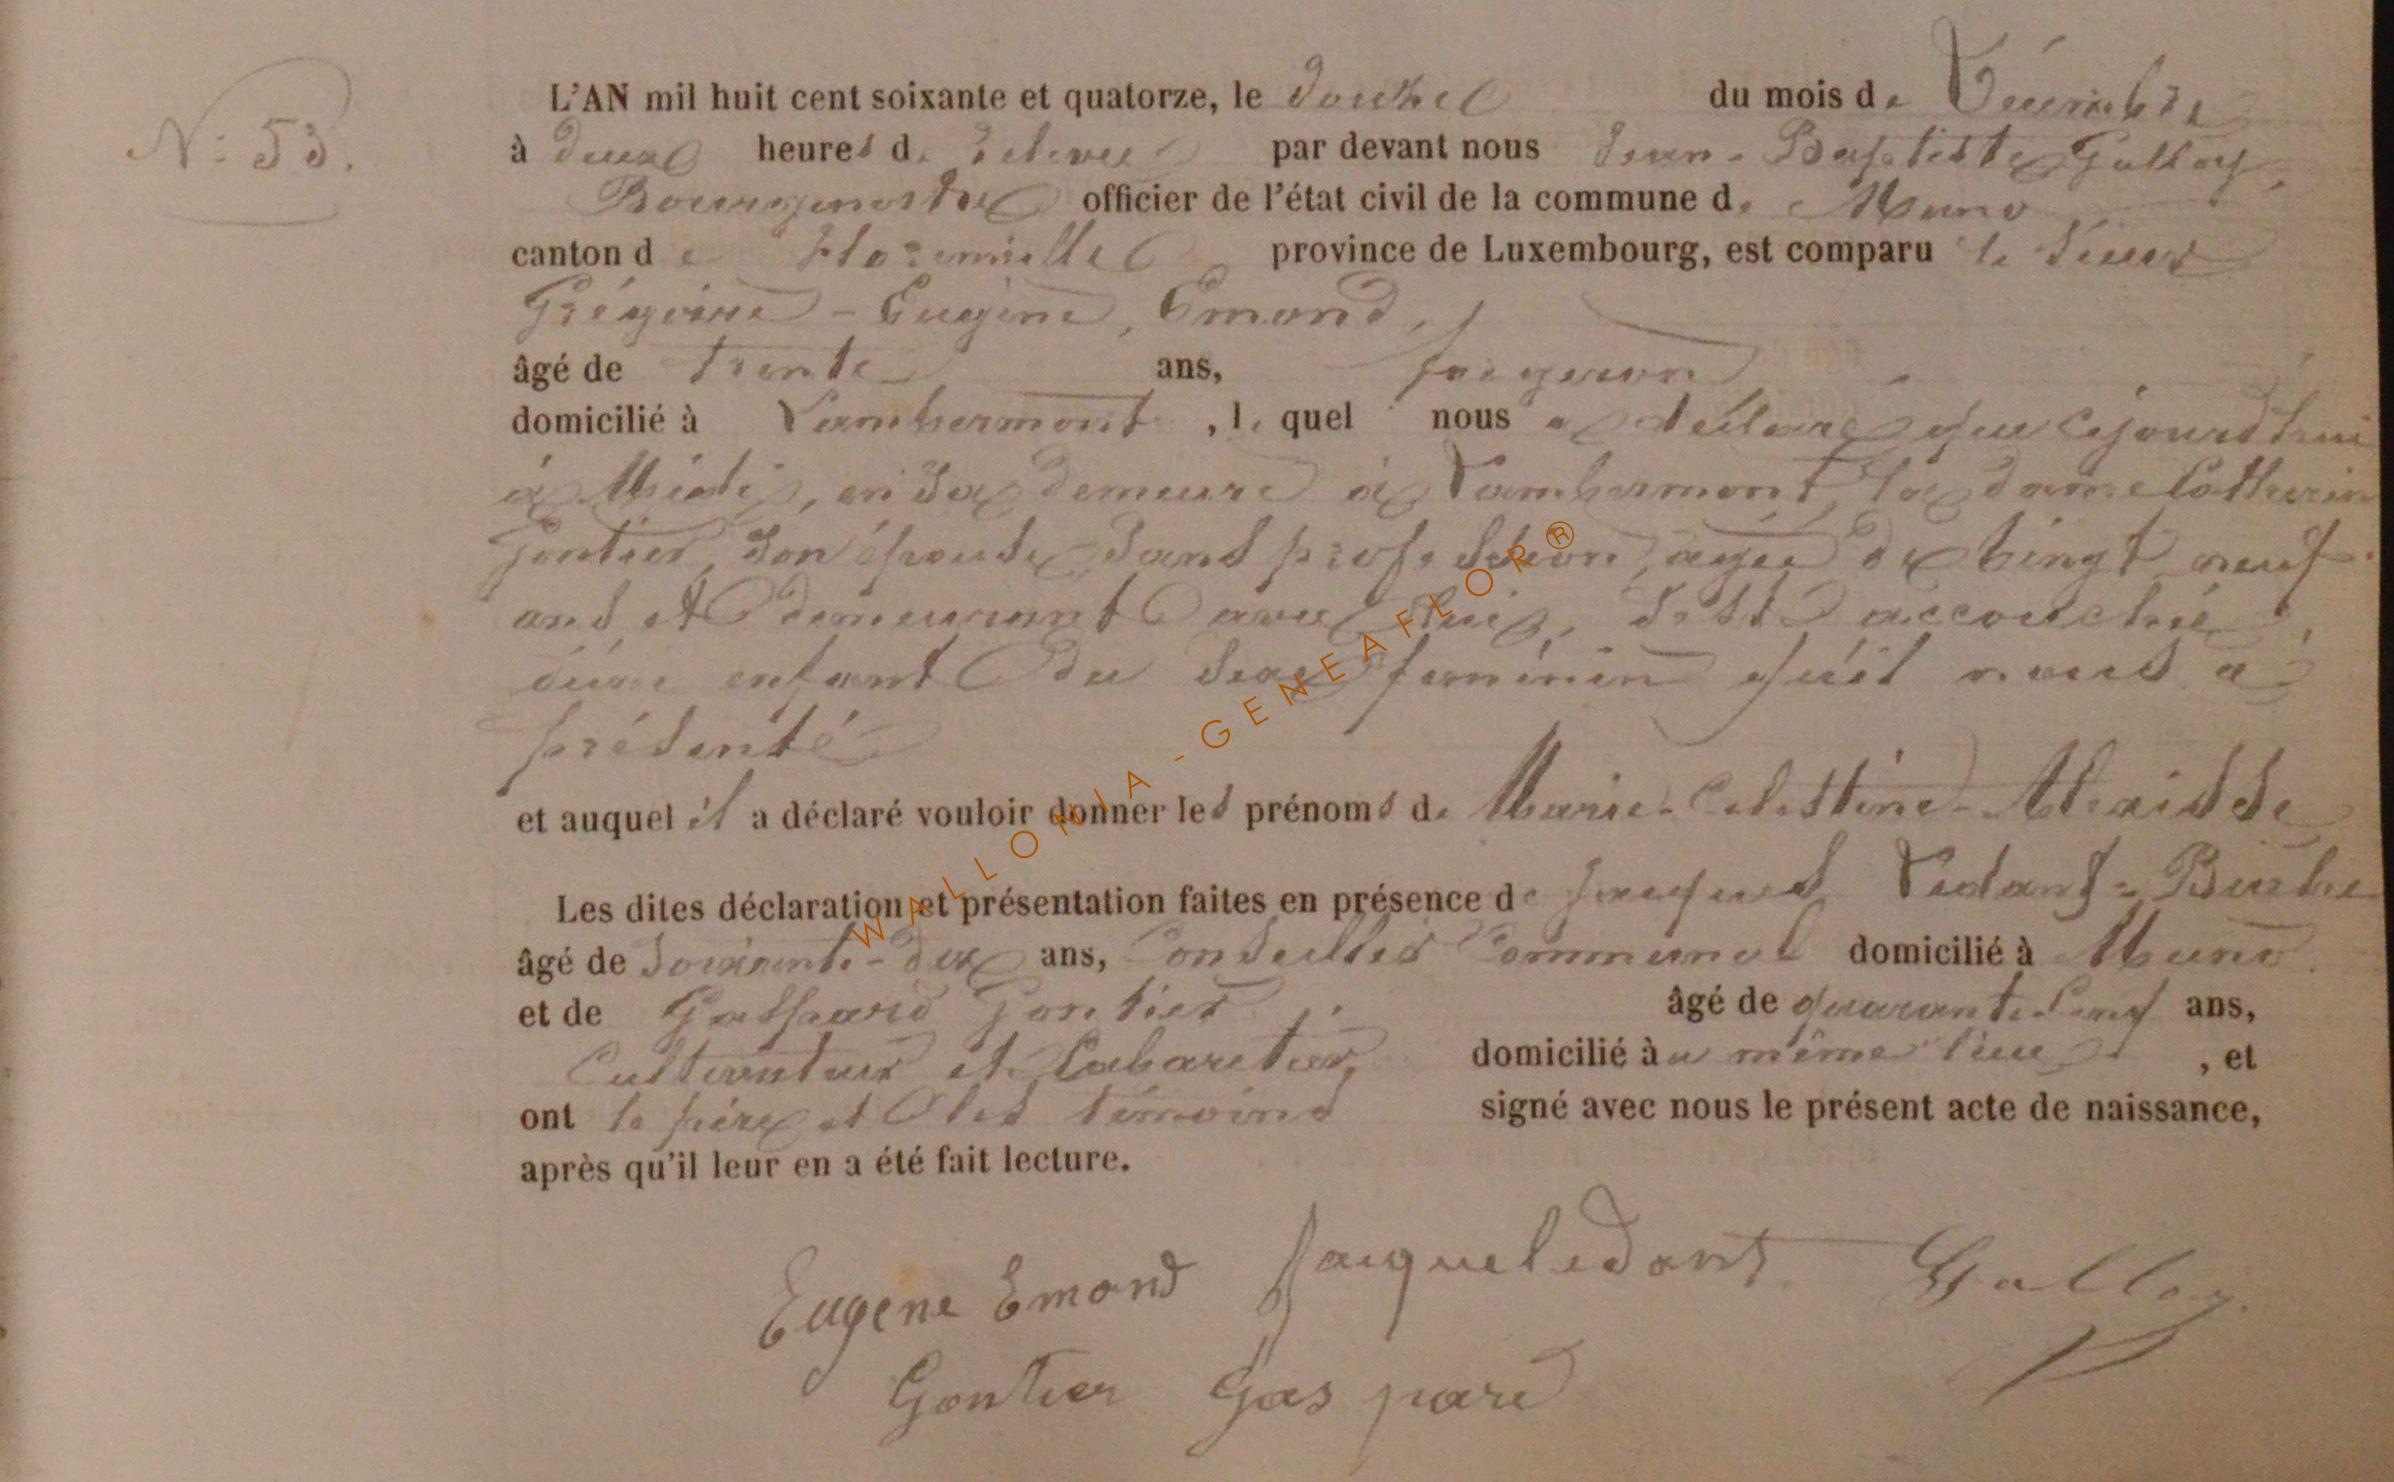 N° 53.
L'AN mil huit cent soixante et quatorze, le douze du mois de Décembre
à deux heures de relevée par devant nous Jean-Baptiste Galloy,
Bourgmestre officier de l'état civil de la commune de Muno
canton de Florenville province de Luxembourg, est comparu le sieur
Grégoire-Eugène, Emond,
âgé de trente ans, forgeron
domicilié à Lambermont, lequel nous a déclaré que cejourd'hui
à Midi, en sa demeure à Lambermont, la dame Catherine
Gontier, son épouse, sans profession, agée de vingt neuf
ans et demeurant avec lui, s'est accouchée
d'un enfant du sexe féminin qu'il nous a
présenté
et auquel il a déclaré vouloir donner les prénoms de Marie-Celestine-Alexisse
Les dites déclaration et présentation faites en présence de Jacques Ledant-
âgé de soixante-dix ans, Conseiller Communal domicilié à Muno
et de Gaspard Gontier, âgé de ans,
Cultivateur et Cabaretier, domicilié au même lieu, et
ont le père et les témoins signé avec nous le présent acte de naissance,
après qu'il leur en a été fait lecture.
Eugene Emond Jacque ledant Galloy
Gontier Gaspard
WALLONIA-GENEAFLOR®